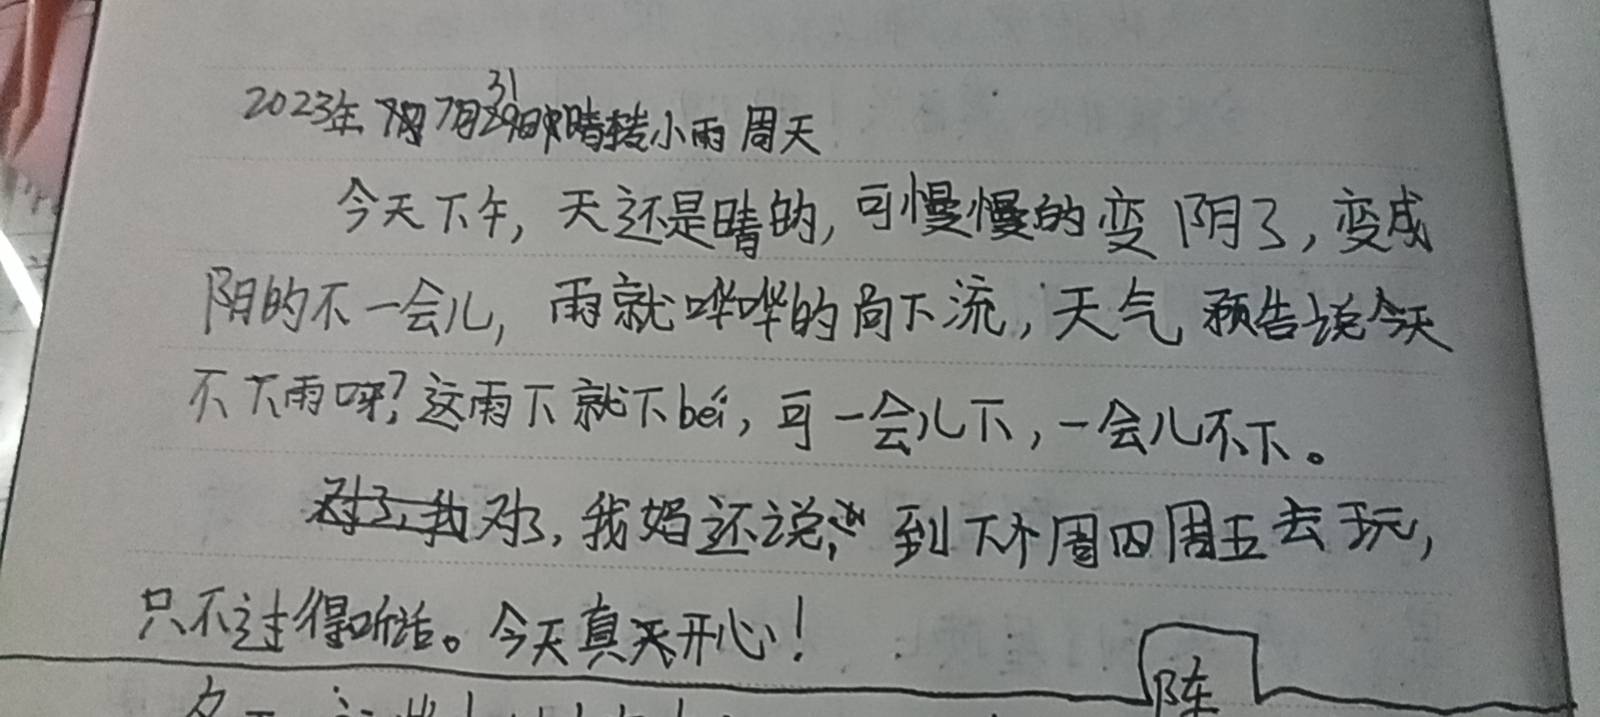 2023年7月31日晴转小雨 周天
今天下午, 天还是晴的, 可慢慢的变阴了, 变成
阴的不一会儿, 雨就哗哗的向下流, 天气预告说今天
不下雨呀? 这雨下就下béi, 可一会儿下, 一会儿不下。
对了, 我妈还说, 到下个周四周五去玩,
只不过得听话。今天真开心!
阵